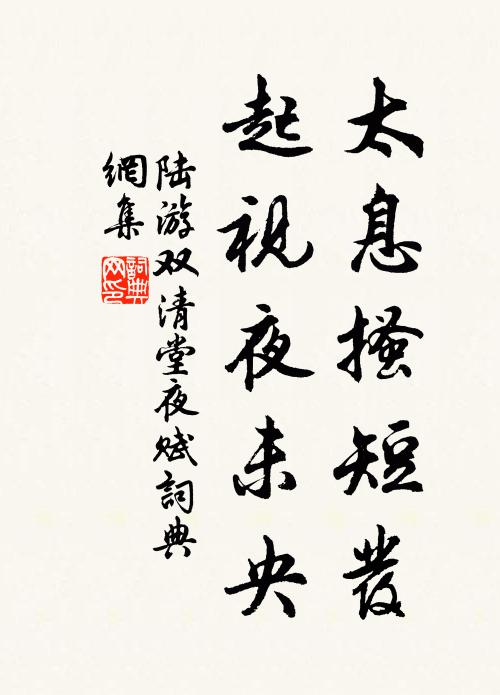 太息搔短發
起視夜未央
陆游双清堂夜赋詞典
網集
詞典
网印